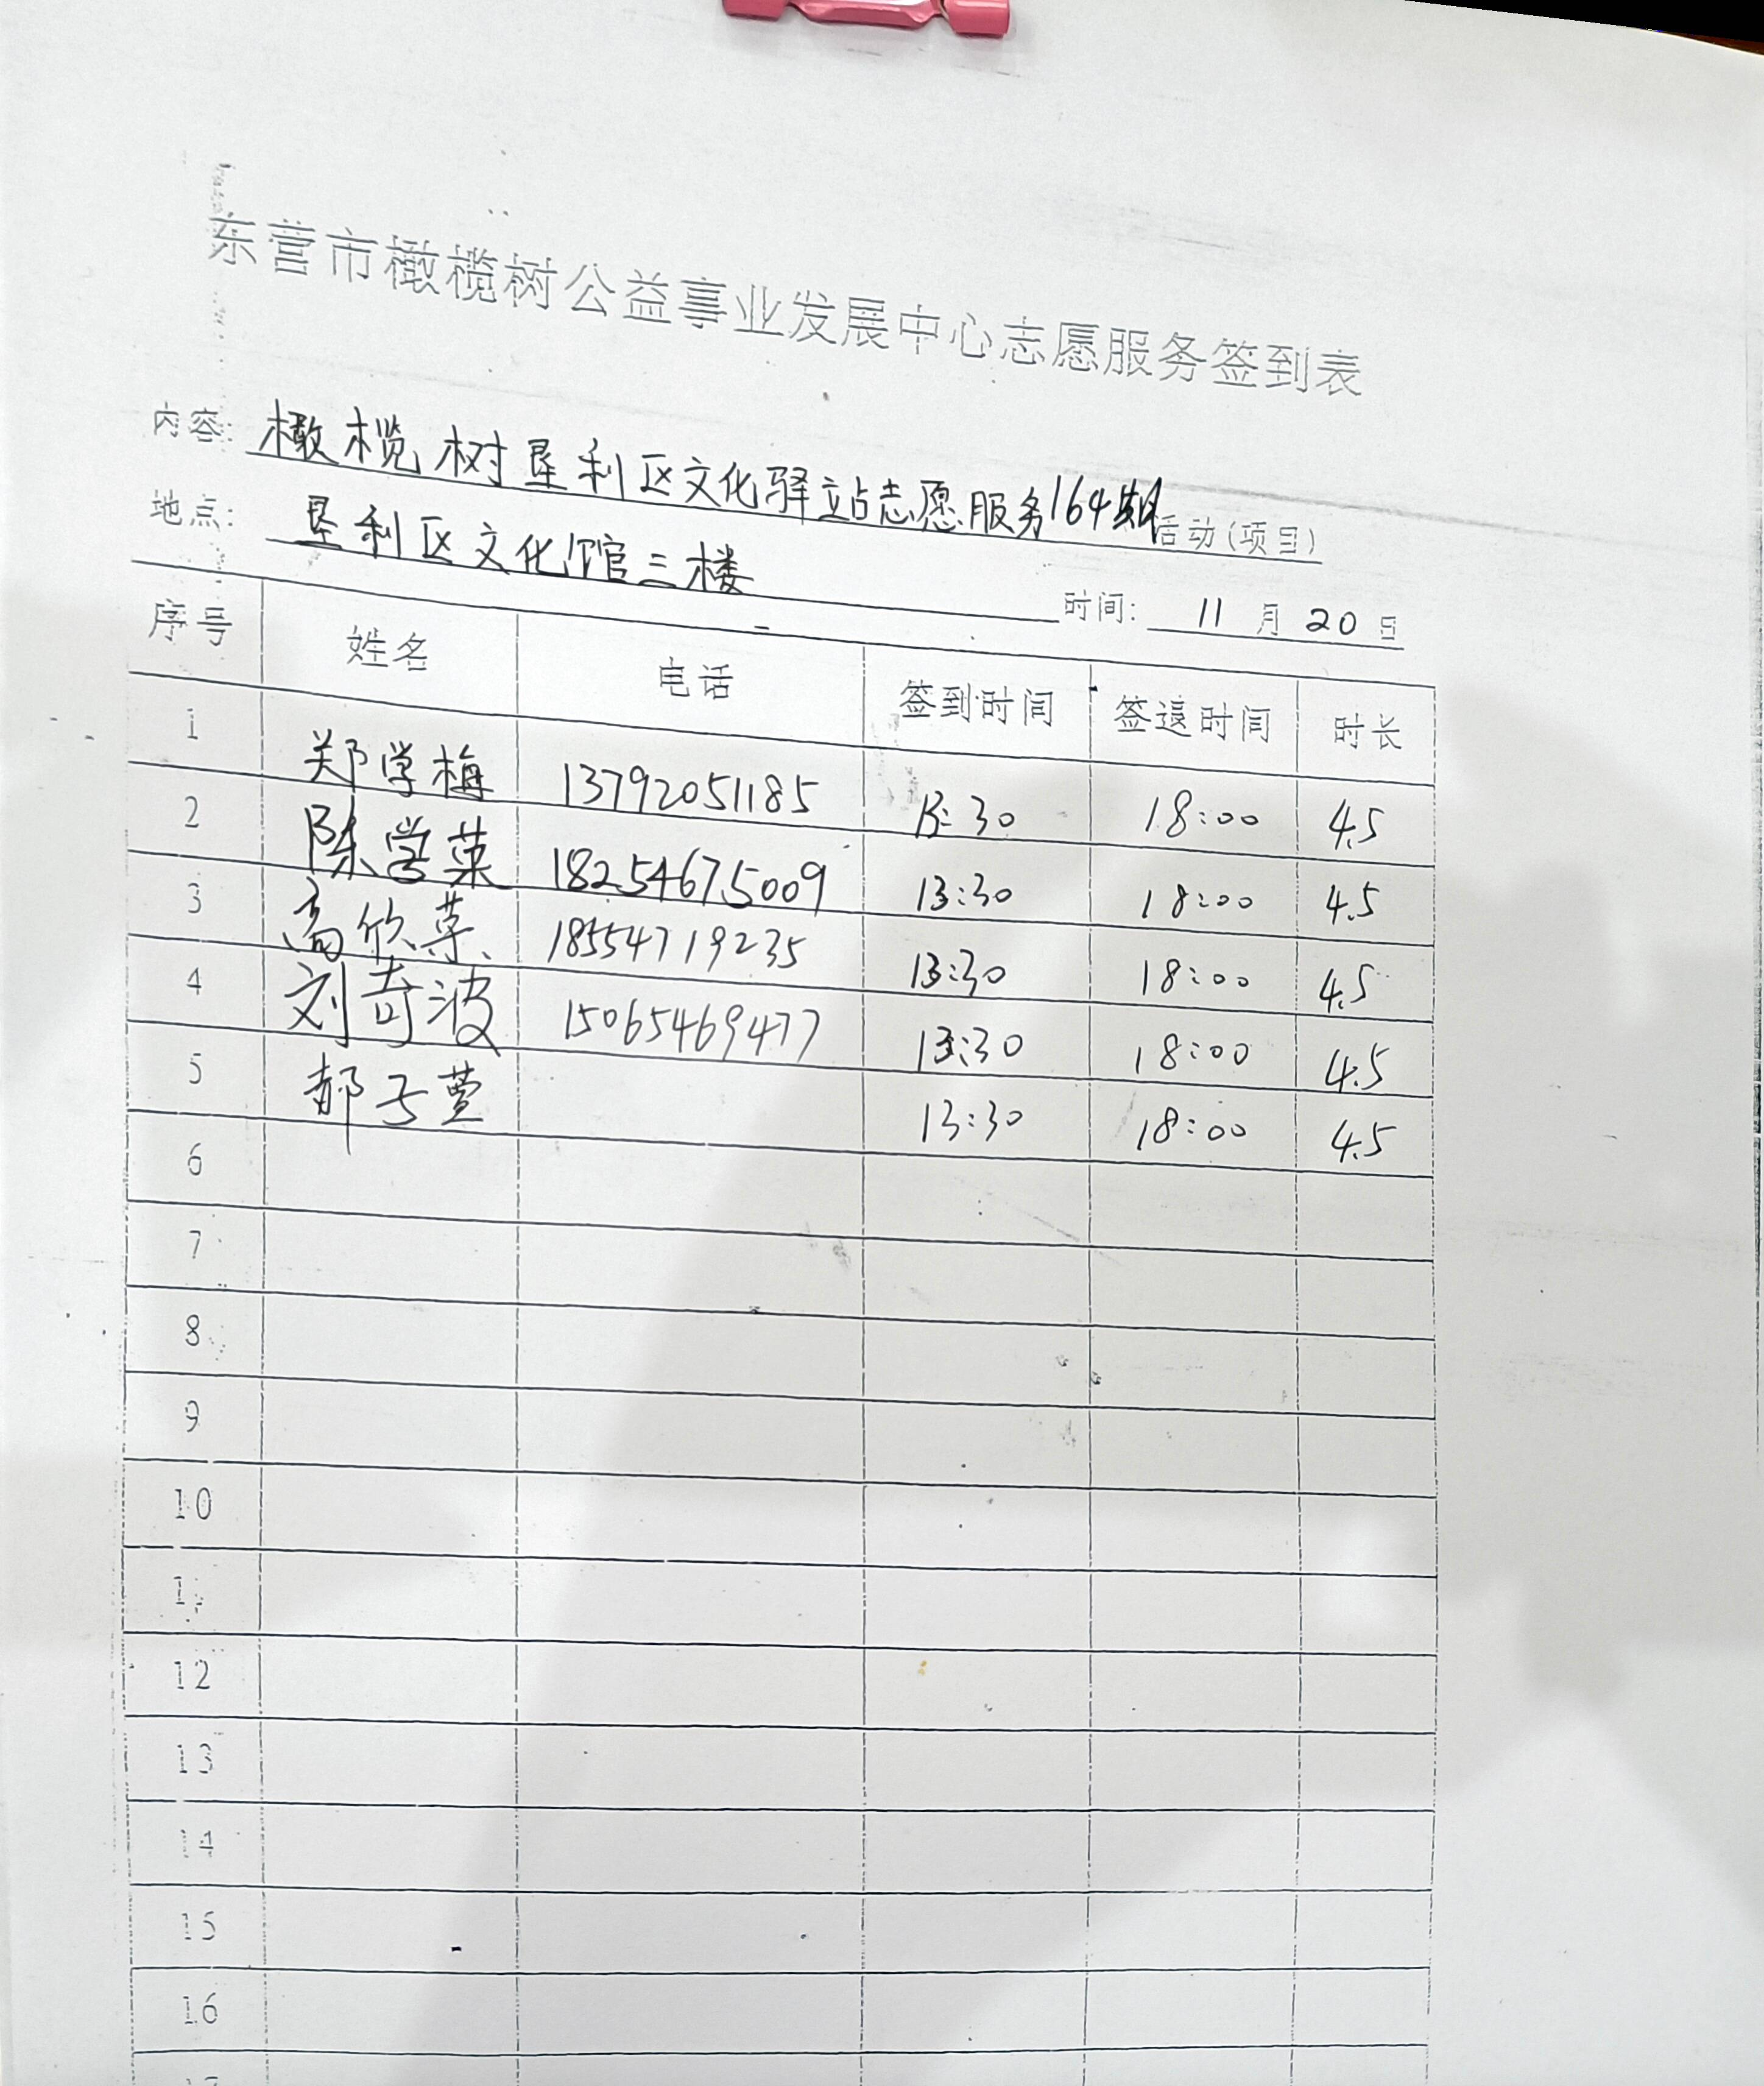 东营市橄榄树公益事业发展中心志愿服务签到表
内容: 橄榄树垦利区文化驿站志愿服务164期活动(项目)
地点: 垦利区文化馆三楼
时间: 11月20日
序号 姓名 电话 签到时间 签退时间 时长
1 郑学梅 13792051185 13:30 18:00 4.5
2 陈学菜 18254675009 13:30 18:00 4.5
3 高欣 18554719235 13:30 18:00 4.5
4 刘奇波 15065469477 13:30 18:00 4.5
5 郝子萱 13:30 18:00 4.5
6
7
8
9
10
12
13
14
15
16